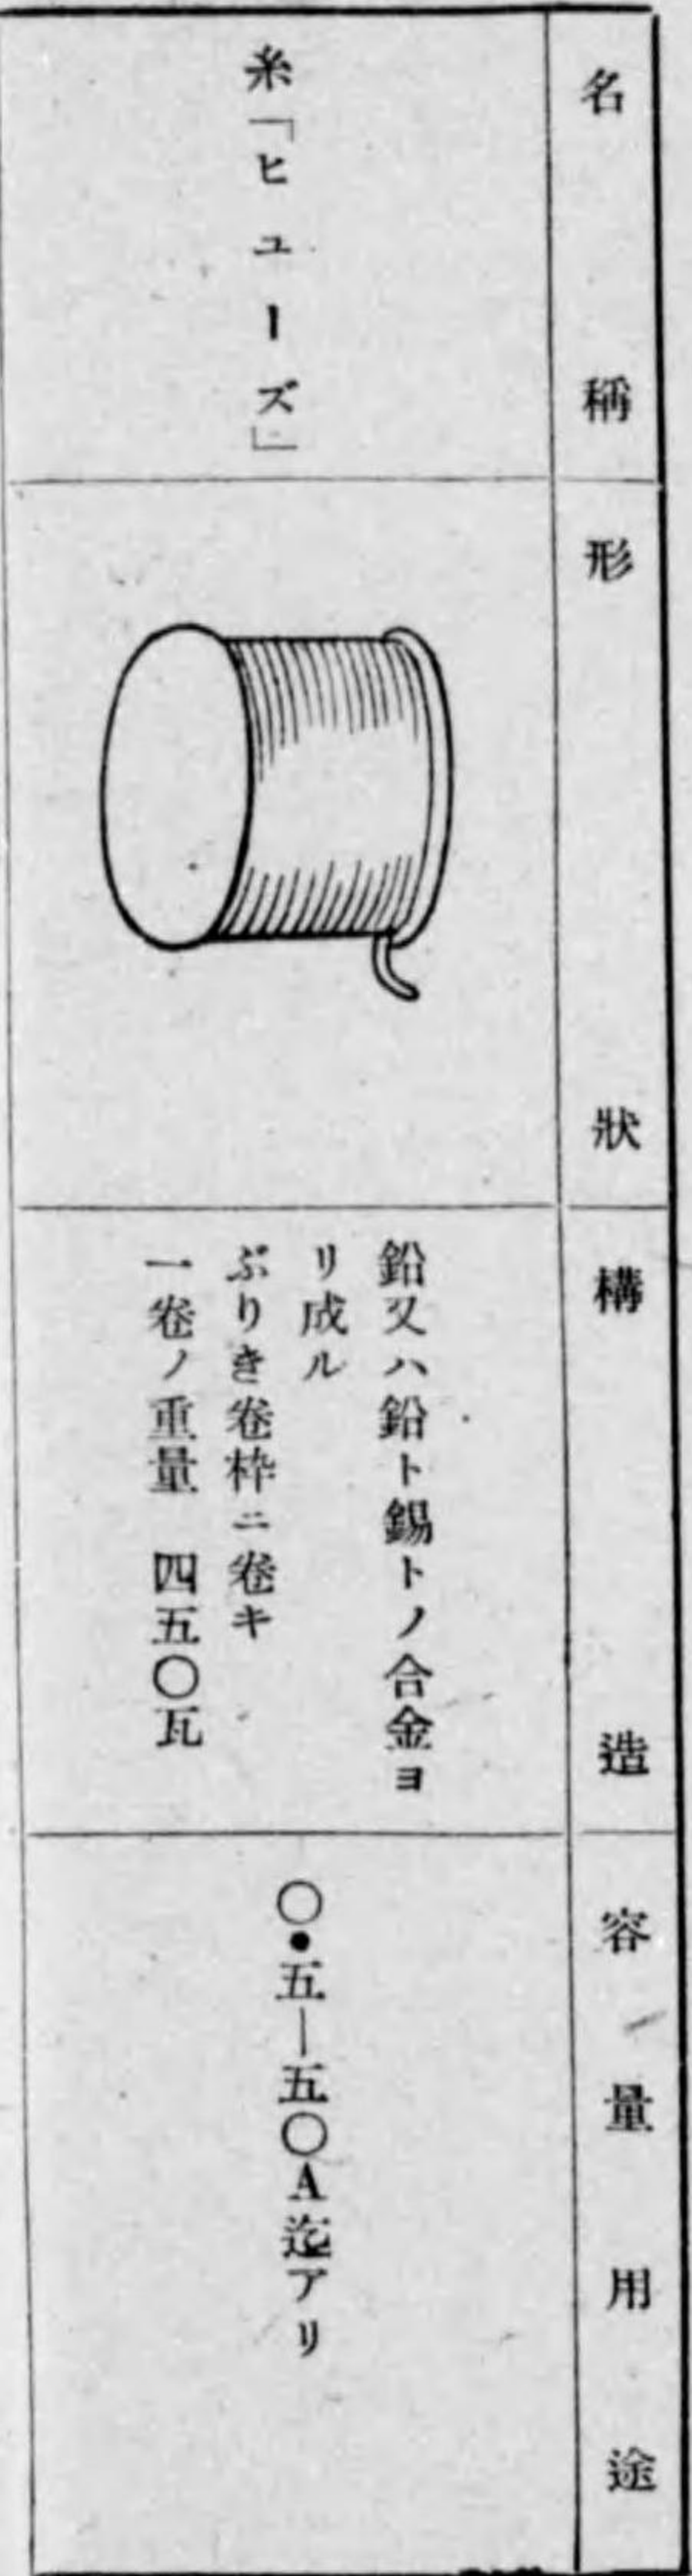 名稱
形狀
構造
容量用途
糸「ヒューズ」
鉛又ハ鉛ト錫トノ合金ヨ
リ成ル
ぶりき卷枠ニ卷キ
一卷ノ重量 四五〇瓦
〇・五—五〇A迄アリ